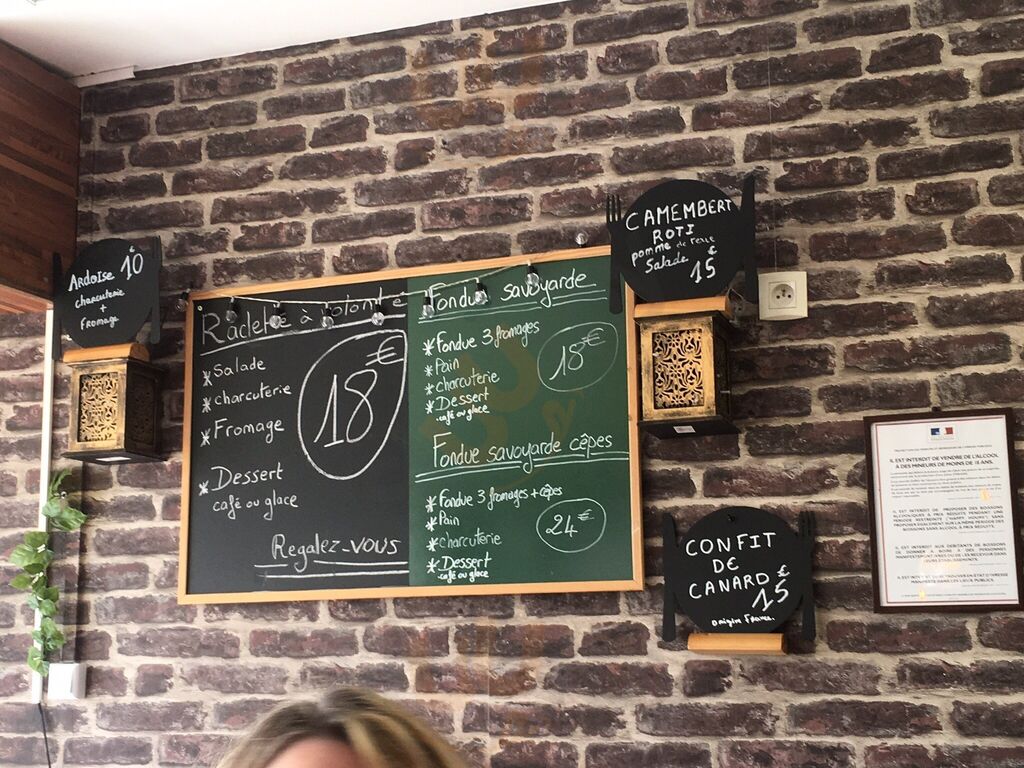 Ardoise 10€
charcuterie
+
Fromage
Raclette à volonté
* Salade
* charcuterie
* Fromage
18€
* Dessert
café ou glace
Regalez-vous
Fondue savoyarde
* Fondue 3 fromages
* Pain
* charcuterie
* Dessert
.café ou glace
18€
Fondue savoyarde cêpes
* Fondue 3 fromages + cêpes
* Pain
* charcuterie
* Dessert
.café ou glace
24€
CAMEMBERT
ROTI
pomme de terre
Salade 15€
CONFIT
DE
CANARD 15€
origine France.
IL EST INTERDIT DE VENDRE DE L'ALCOOL
À DES MINEURS DE MOINS DE 18 ANS.
IL EST INTERDIT DE PROPOSER DES BOISSONS
ALCOOLIQUES À PRIX RÉDUITS PENDANT UNE
PÉRIODE RESTREINTE ("HAPPY HOURS") SANS
PROPOSER ÉGALEMENT SUR LA MÊME PÉRIODE DES
BOISSONS SANS ALCOOL À PRIX RÉDUIT.
IL EST INTERDIT AUX DÉBITANTS DE BOISSONS
DE DONNER À BOIRE À DES PERSONNES
MANIFESTEMENT IVRES OU DE LES RECEVOIR DANS
LEURS ÉTABLISSEMENTS.
IL EST INTERDIT DE SE TROUVER EN ÉTAT D'IVRESSE
MANIFESTE DANS LES LIEUX PUBLICS.